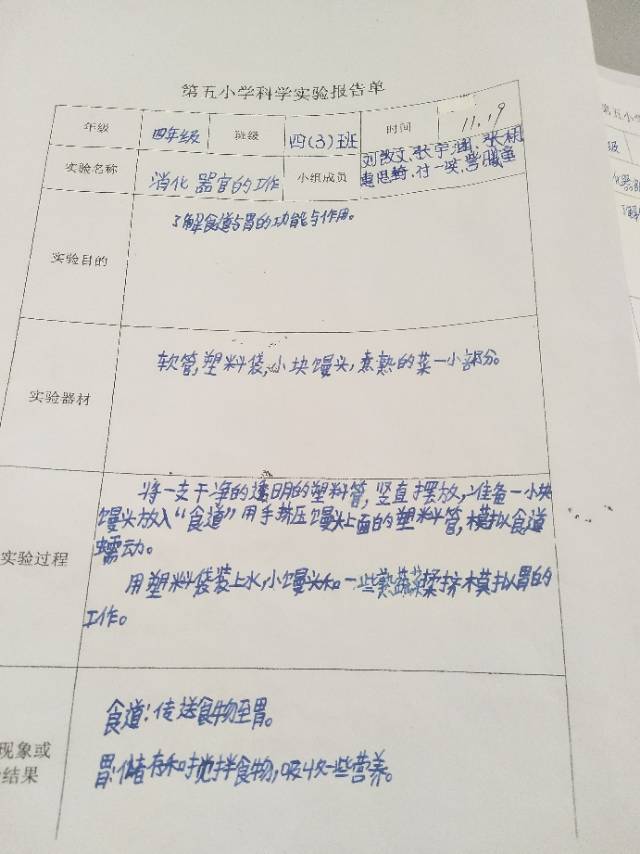 第五小学科学实验报告单
年级 四年级 班级 四(3)班 时间 11.19
实验名称 消化器官的工作 小组成员
实验目的 了解食道与胃的功能与作用。
实验器材 软管,塑料袋,小块馒头,煮熟的菜一小部分。
将一支干净的透明的塑料管,竖直摆放,准备一小块
馒头放入“食道”用手挤压馒头上面的塑料管,模拟食道
实验过程 蠕动。
用塑料袋装上水,小馒头和一些熟蔬菜揉挤模拟胃的
工作。
食道:传送食物至胃。
现象或
结果 胃:储存和搅拌食物,吸收一些营养。
第五小学
级